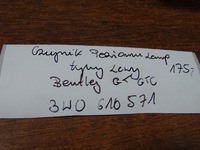 Czujnik Poziomu Lamp
tylny Lewy 175,-
Bentley GT GTC
3W0 616 571